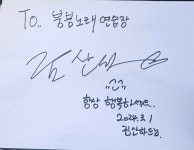 To.. 붕붕노래연습장
항상 행복하세요..
2024.3.1
김산하드림